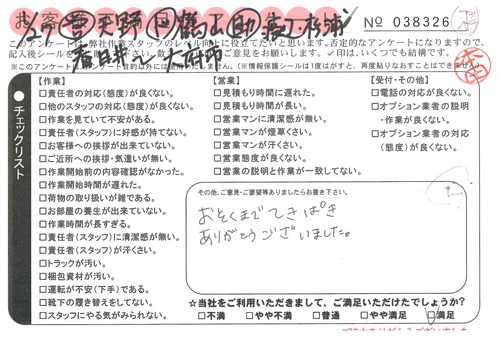 お客
No 038326
春日井→大府
このアンケートは、弊社作業スタッフのレベル向上に役立てたいと思います。否定的なアンケートになりますので、
記入後シールを
ご意見をお書き下さい。✓印は、いくつでも結構です。
※このアンケートは
目的以外には使用致しません。(※情報保護シールは1度はがすと、再度貼りなおすことはできません。)
●チェックリスト
【作業】
□責任者の対応(態度)が良くない。
□他のスタッフの対応(態度)が良くない。
□作業を見ていて不安がある。
□責任者(スタッフ)に好感が持てない。
□お客様への挨拶が出来ていない。
□ご近所への挨拶・気遣いが無い。
□作業開始前の内容確認がなかった。
□作業開始時間が遅れた。
□荷物の取り扱いが雑である。
□お部屋の養生が出来ていない。
□作業時間が長すぎる。
□責任者(スタッフ)に清潔感が無い。
□責任者(スタッフ)が汗くさい。
□トラックが汚い。
□梱包資材が汚い。
□運転が不安(下手)である。
□靴下の履き替えをしてない。
□スタッフにやる気がみられない。
【営業】
□見積もり時間に遅れた。
□見積もり時間が長い。
□営業マンに清潔感が無い。
□営業マンが煙草くさい。
□営業マンが汗くさい。
□営業態度が良くない。
□営業の説明と作業が一致してない。
【受付・その他】
□電話の対応が良くない。
□オプション業者の説明
・作業が良くない。
□オプション業者の対応
(態度)が良くない。
その他、ご意見・ご要望等ありましたらお書き下さい。
おそくまでてきぱき
ありがとうございました。
☆当社をご利用いただきまして、ご満足いただけたでしょうか?
□不満 □やや不満 □普通 □やや満足 □満足